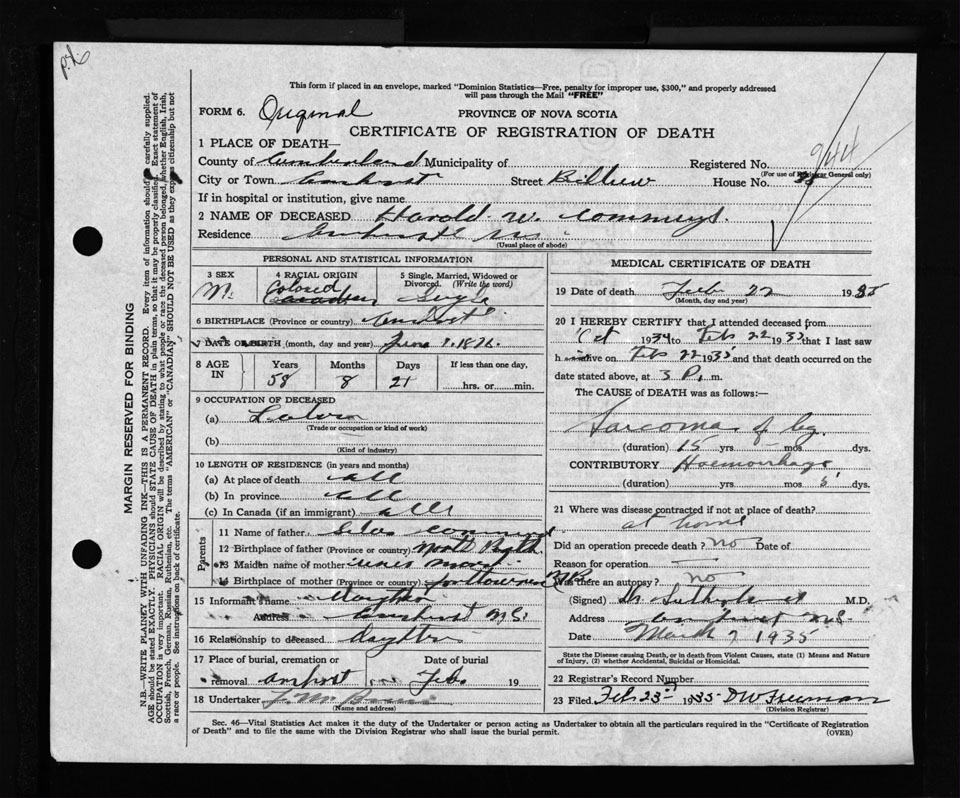 This form if placed in an envelope, marked "Dominion Statistics—Free, penalty for improper use, $300," and properly addressed
will pass through the Mail "FREE"
FORM 6. Original PROVINCE OF NOVA SCOTIA
CERTIFICATE OF REGISTRATION OF DEATH
1 PLACE OF DEATH—
County of Cumberland Municipality of Registered No. 944
(For use of Registrar General only)
City or Town Amherst Street House No.
If in hospital or institution, give name
2 NAME OF DECEASED Harold W.
Residence Amherst N.S.
(Usual place of abode)
PERSONAL AND STATISTICAL INFORMATION
3 SEX 4 RACIAL ORIGIN 5 Single, Married, Widowed or Divorced. (Write the word)
M. Colored Canadian Single
6 BIRTHPLACE (Province or country) Amherst
7 DATE OF BIRTH (month, day and year) June 1. 1876.
8 AGE IN Years Months Days If less than one day,
58 8 21 hrs. or min.
9 OCCUPATION OF DECEASED
(a) Labor
(Trade or occupation or kind of work)
(b)
(Kind of industry)
10 LENGTH OF RESIDENCE (in years and months)
(a) At place of death all
(b) In province all
(c) In Canada (if an immigrant) all
Parents
11 Name of father
12 Birthplace of father (Province or country)
13 Maiden name of mother
14 Birthplace of mother (Province or country)
15 Informant's name
Address Amherst N.S.
16 Relationship to deceased Daughter
17 Place of burial, cremation or Date of burial
removal Amherst Feb 19
18 Undertaker
(Name and address)
MEDICAL CERTIFICATE OF DEATH
19 Date of death Feb 22 1935
(Month, day and year)
20 I HEREBY CERTIFY that I attended deceased from
Oct 1934 to Feb 22 1935 that I last saw
h alive on Feb 22 1935 and that death occurred on the
date stated above, at 3 P. m.
The CAUSE of DEATH was as follows:
Sarcoma of leg.
(duration) 15 yrs mos dys.
CONTRIBUTORY Haemorrhage
(duration) yrs mos 5 dys.
21 Where was disease contracted if not at place of death?
at home
Did an operation precede death? no Date of
Reason for operation
Was there an autopsy? no
(Signed) Sutherland M.D.
Address Amherst N.S.
Date March 7 1935
State the Disease causing Death, or in death from Violent Causes, state (1) Means and Nature
of Injury, (2) whether Accidental, Suicidal or Homicidal.
22 Registrar's Record Number
23 Filed Feb 23 1935 D W Freeman
(Division Registrar)
Sec. 46—Vital Statistics Act makes it the duty of the Undertaker or person acting as Undertaker to obtain all the particulars required in the "Certificate of Registration
of Death" and to file the same with the Division Registrar who shall issue the burial permit. (OVER)
MARGIN RESERVED FOR BINDING
N.B.—WRITE PLAINLY WITH UNFADING INK—THIS IS A PERMANENT RECORD. Every item of information should be carefully supplied.
AGE should be stated EXACTLY. PHYSICIANS should STATE CAUSE OF DEATH in plain terms, so that it may be properly classified. Exact statement of
OCCUPATION is very important. RACIAL ORIGIN will be described by stating to what people or race the deceased person belonged, whether English, Irish,
Scottish, French, German, Russian, Ruthenian, etc. The terms "AMERICAN" or "CANADIAN" SHOULD NOT BE USED as they express citizenship but not
a race or people. See instructions on back of certificate.